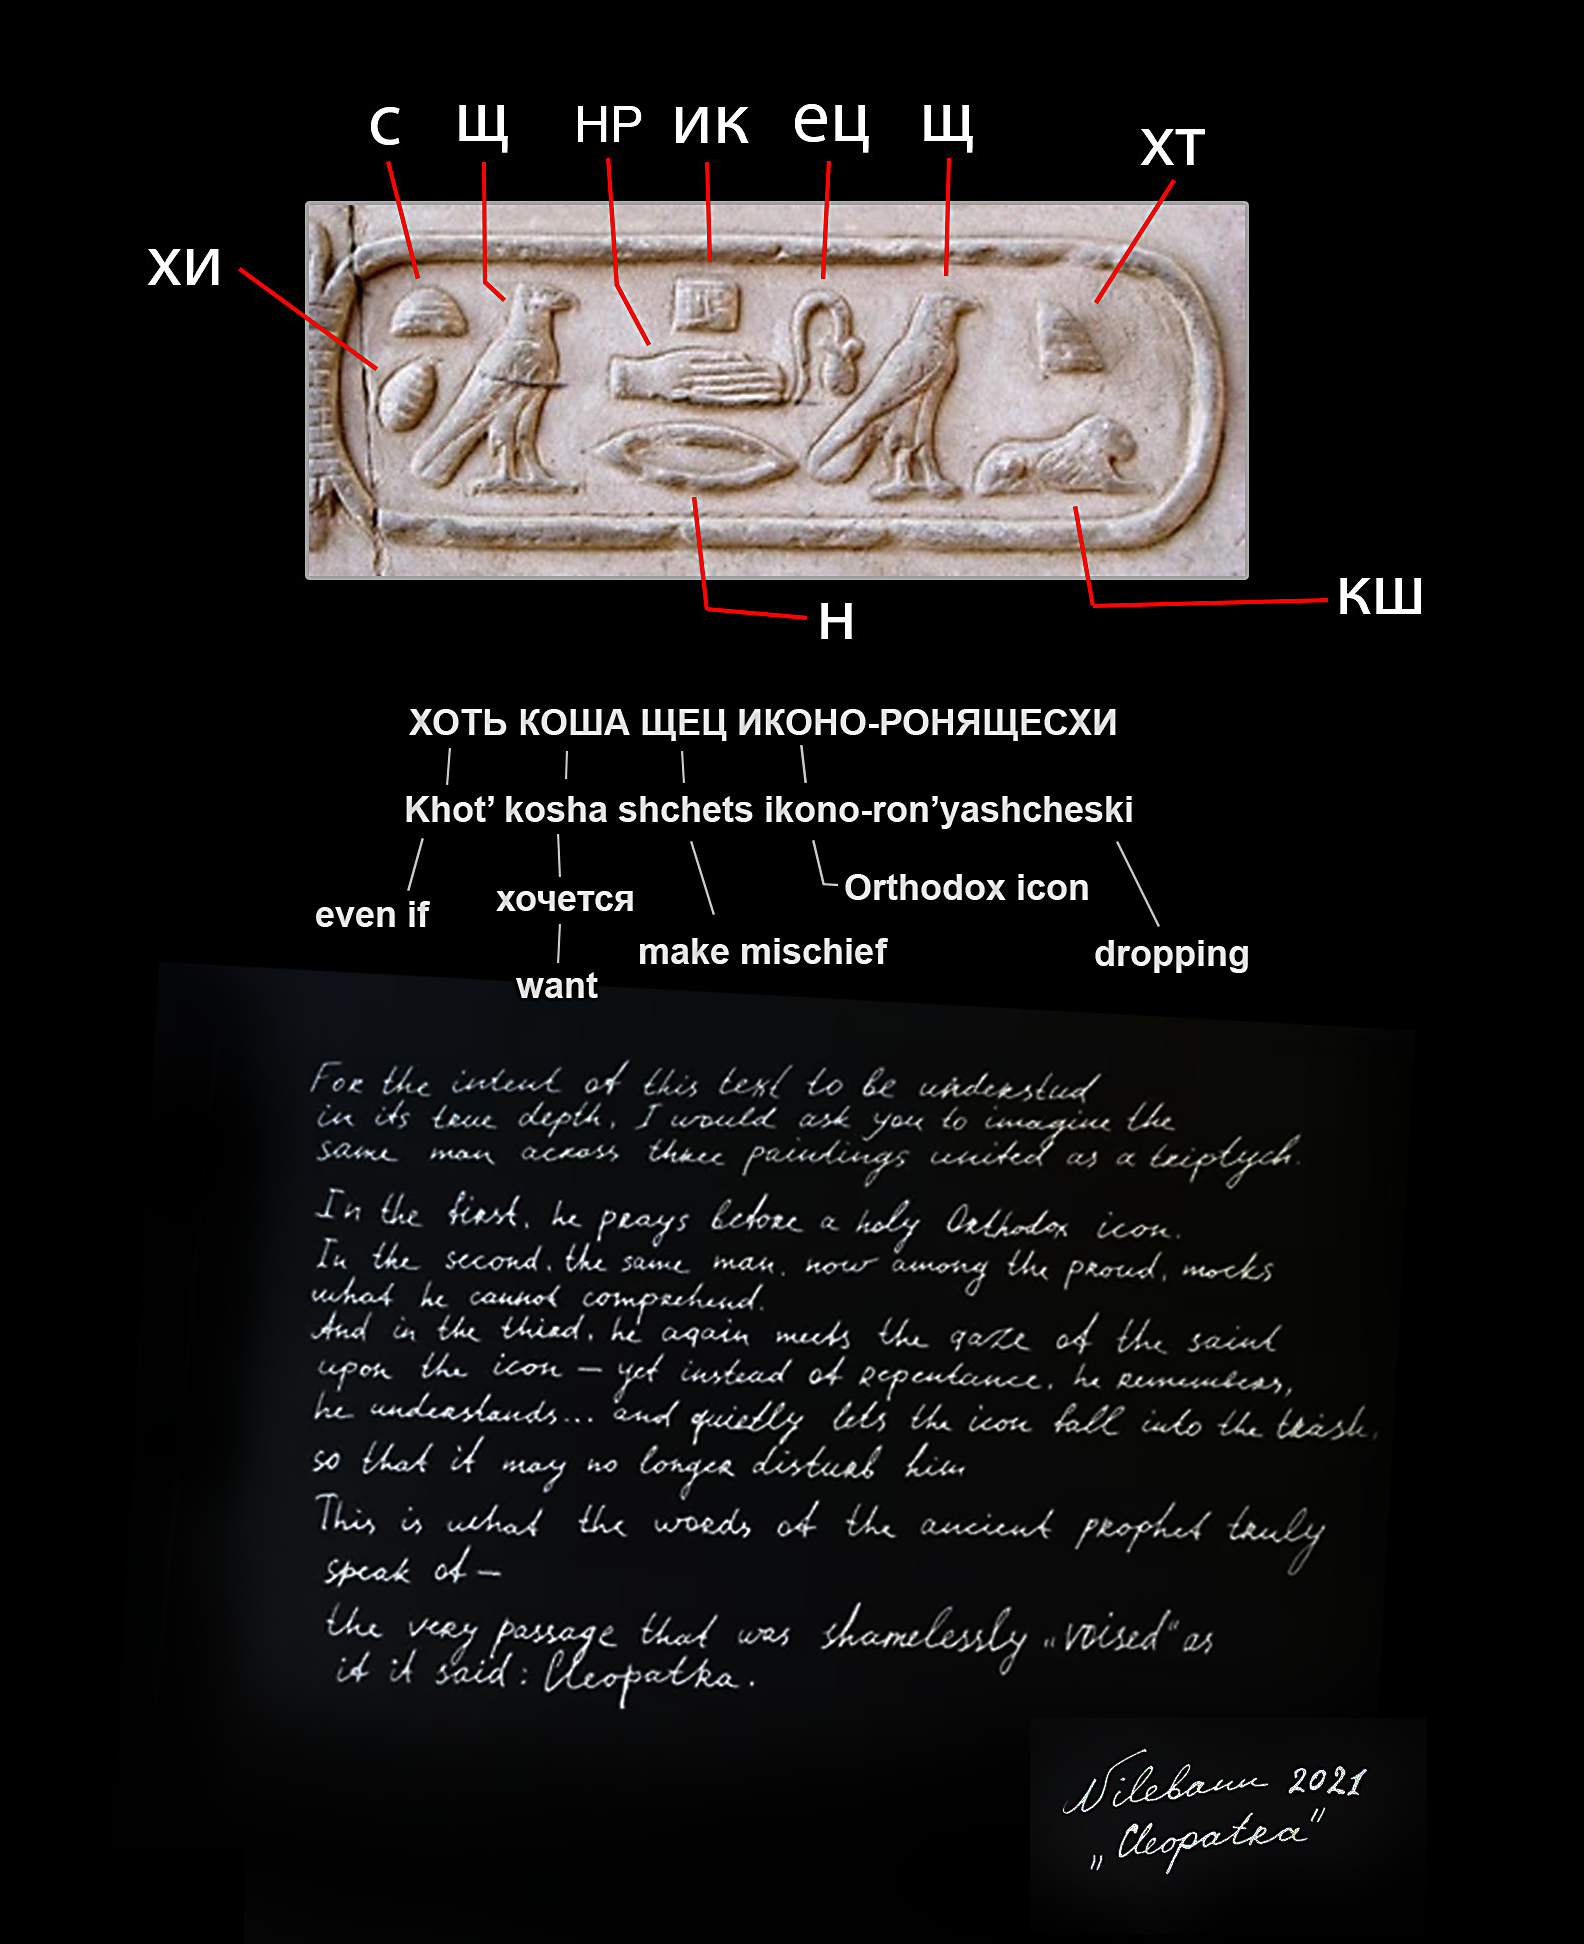 с щ нр ик ец щ хт
хи
н
кш
ХОТЬ КОША ЩЕЦ ИКОНО-РОНЯЩЕСХИ
Khot’ kosha shchets ikono-ron’yashcheski
even if
хочется
Orthodox icon
make mischief
dropping
want
For the intent of this text to be understud
in its true depth, I would ask you to imagine the
same man across three paintings united as a triptych.
In the first, he prays before a holy Orthodox icon.
In the second, the same man, now among the proud, mocks
what he cannot comprehend.
And in the third, he again meets the gaze of the saint
upon the icon — yet instead of repentance, he remembers,
he understands... and quietly lets the icon fall into the trash,
so that it may no longer disturb him
This is what the words of the ancient prophet truly
speak of —
the very passage that was shamelessly „voised“ as
if it said: Cleopatra.
Nilebann 2021
„Cleopatra"